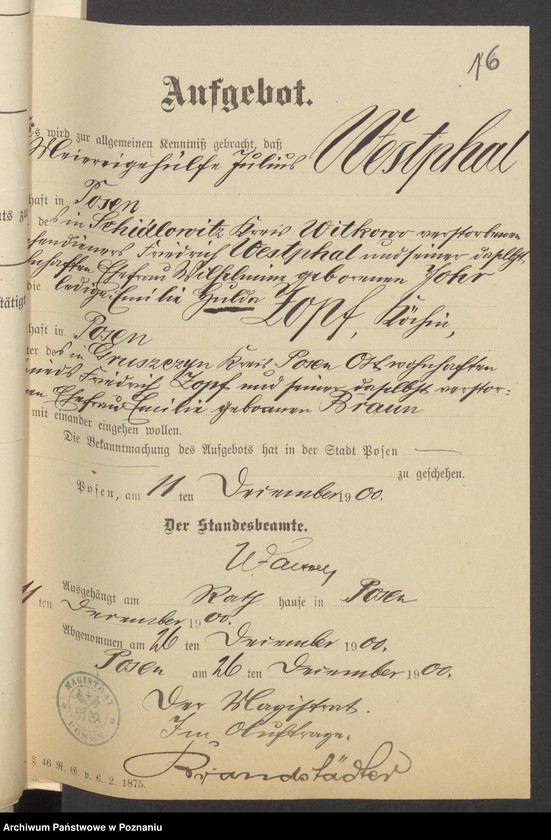 16
Aufgebot.
Es wird zur allgemeinen Kenntniß gebracht, daß
Meiereigehülfe Julius Westphal
haft in Posen
des in Schidlowitz Kreis Witkowo verstorbenen
Friedrich Westphal und seiner daselbst
Ehefrau Wilhelmine geborenen
die ledige Emilie Hulda Zopf, Köchin,
haft in Posen
ter des in Gruszczyn Kreis Posen Ost wohnhaften
Friedrich Zopf und seiner daselbst verstor-
nen Ehefrau Emilie geborenen Braun
mit einander eingehen wollen.
Die Bekanntmachung des Aufgebots hat in der Stadt Posen
zu geschehen.
Posen, am 11 ten December 1900.
Der Standesbeamte.
Ausgehängt am Rath hause in Posen
11 ten December 1900.
Abgenommen am 26 ten December 1900.
Posen am 26 ten December 1900.
Der Magistrat.
Im Auftrage.
Brandstädter
MAGISTRAT POSEN
§ 46 R. G. v. 6. 2. 1875.
ts zu
tätigt
Archiwum Państwowe w Poznaniu